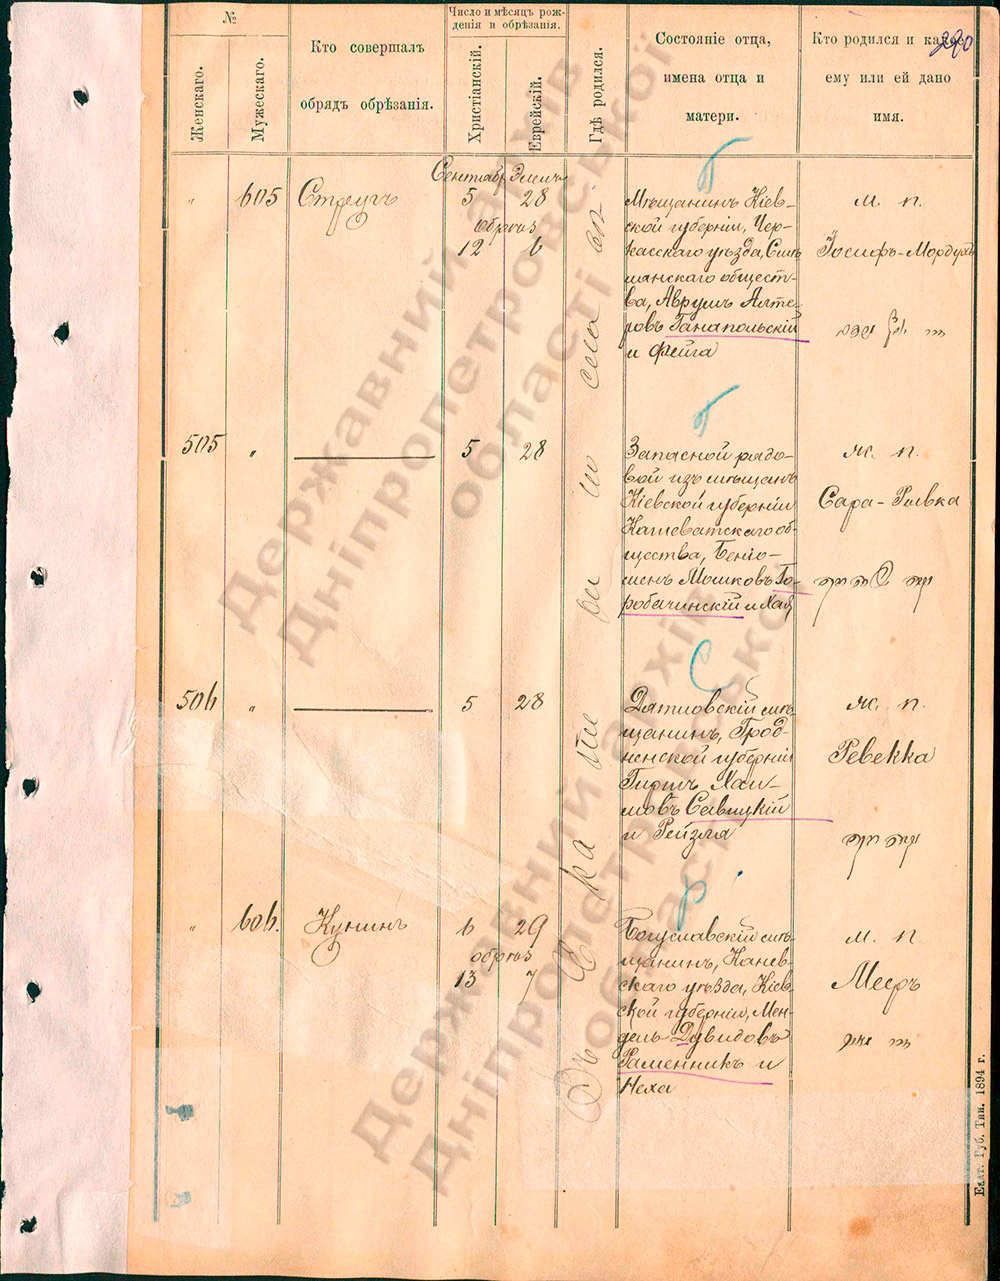 №
Женскаго.
Мужескаго.
Кто совершалъ
обрядъ обрѣзанія.
Число и мѣсяцъ рож-
денія и обрѣзанія.
Христіанскій.
Еврейскій.
Гдѣ родился.
Состояніе отца,
имена отца и
матери.
Кто родился и какое
ему или ей дано
имя.
290
Сентябр Элюль
„ 605 Стругъ 5 28
обрѣз
12 6
Г
Мѣщанинъ Кіев-
ской губерніи, Чер-
касскаго уѣзда, Смѣ-
лянскаго общест-
ва, Аврумъ Алте-
ровъ Ганапольскій
и Фейга
м. п.
Іосифъ-Мордухъ
505 „ 5 28
Г
Запасной рядо-
вой изъ мѣщанъ
Кіевской губерніи
Кашеватскаго об-
щества, Беніо-
менъ Мошковъ Го-
робачинскій и Хая
ж. п.
Сара-Ривка
506 „ 5 28
С
Дятловскій мѣ-
щанинъ, Грод-
ненской губерніи
Гиршъ Хаи-
мовъ Савицкій
и Рейзля
ж. п.
Ревекка
„ 606. Кунинъ 6 29
обрѣз
13 7
Р
Богуславскій мѣ-
щанинъ, Канев-
скаго уѣзда, Кіев-
ской губерніи, Мен-
дель Дувидовъ
Раменникъ и
Неха
м. п.
Мееръ
Въ Екате
Екат. Губ. Тип. 1894 г.
Державний архів
Дніпропетровської
області
Державний архів
Дніпропетровської
області